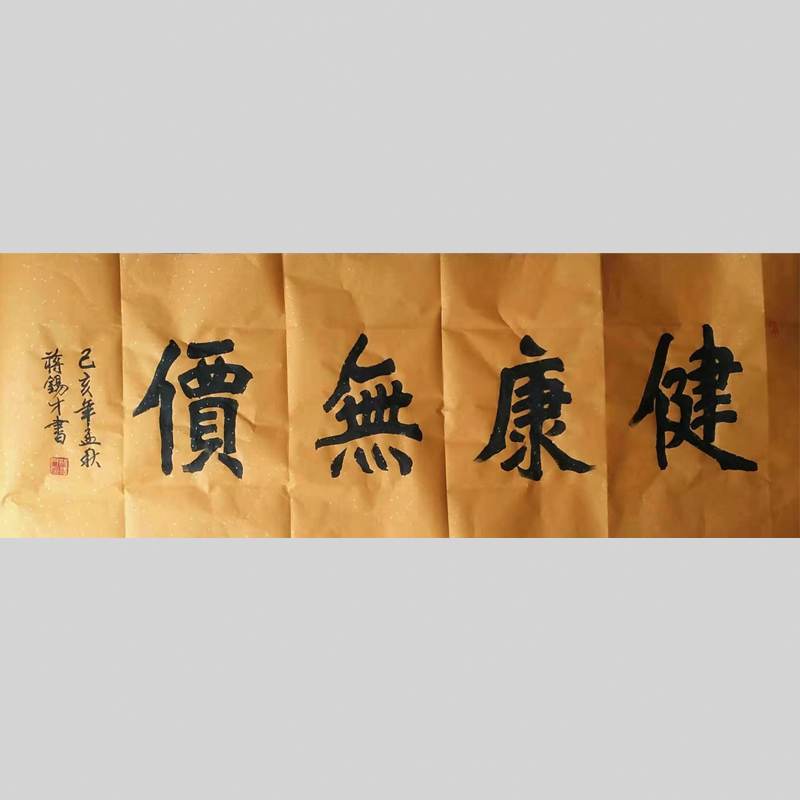 健康無價
己亥年孟秋
蔣錫才書